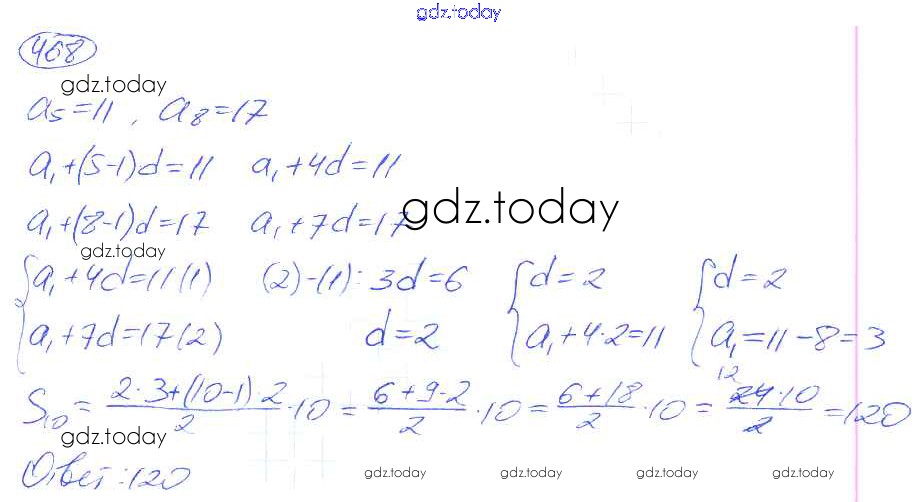 gdz.today
468
gdz.today
a₅=11, a₈=17
a₁+(5-1)d=11 a₁+4d=11
gdz.today
a₁+(8-1)d=17 a₁+7d=17
gdz.today
{a₁+4d=11 (1) (2)-(1): 3d=6 {d=2 {d=2
a₁+7d=17 (2) d=2 a₁+4·2=11 a₁=11-8=3
12
S₁₀= (2·3+(10-1)·2)/2 ·10 = (6+9·2)/2 ·10 = (6+18)/2 ·10 = (24·10)/2 =120
gdz.today
Ответ: 120
gdz.today gdz.today gdz.today gdz.today